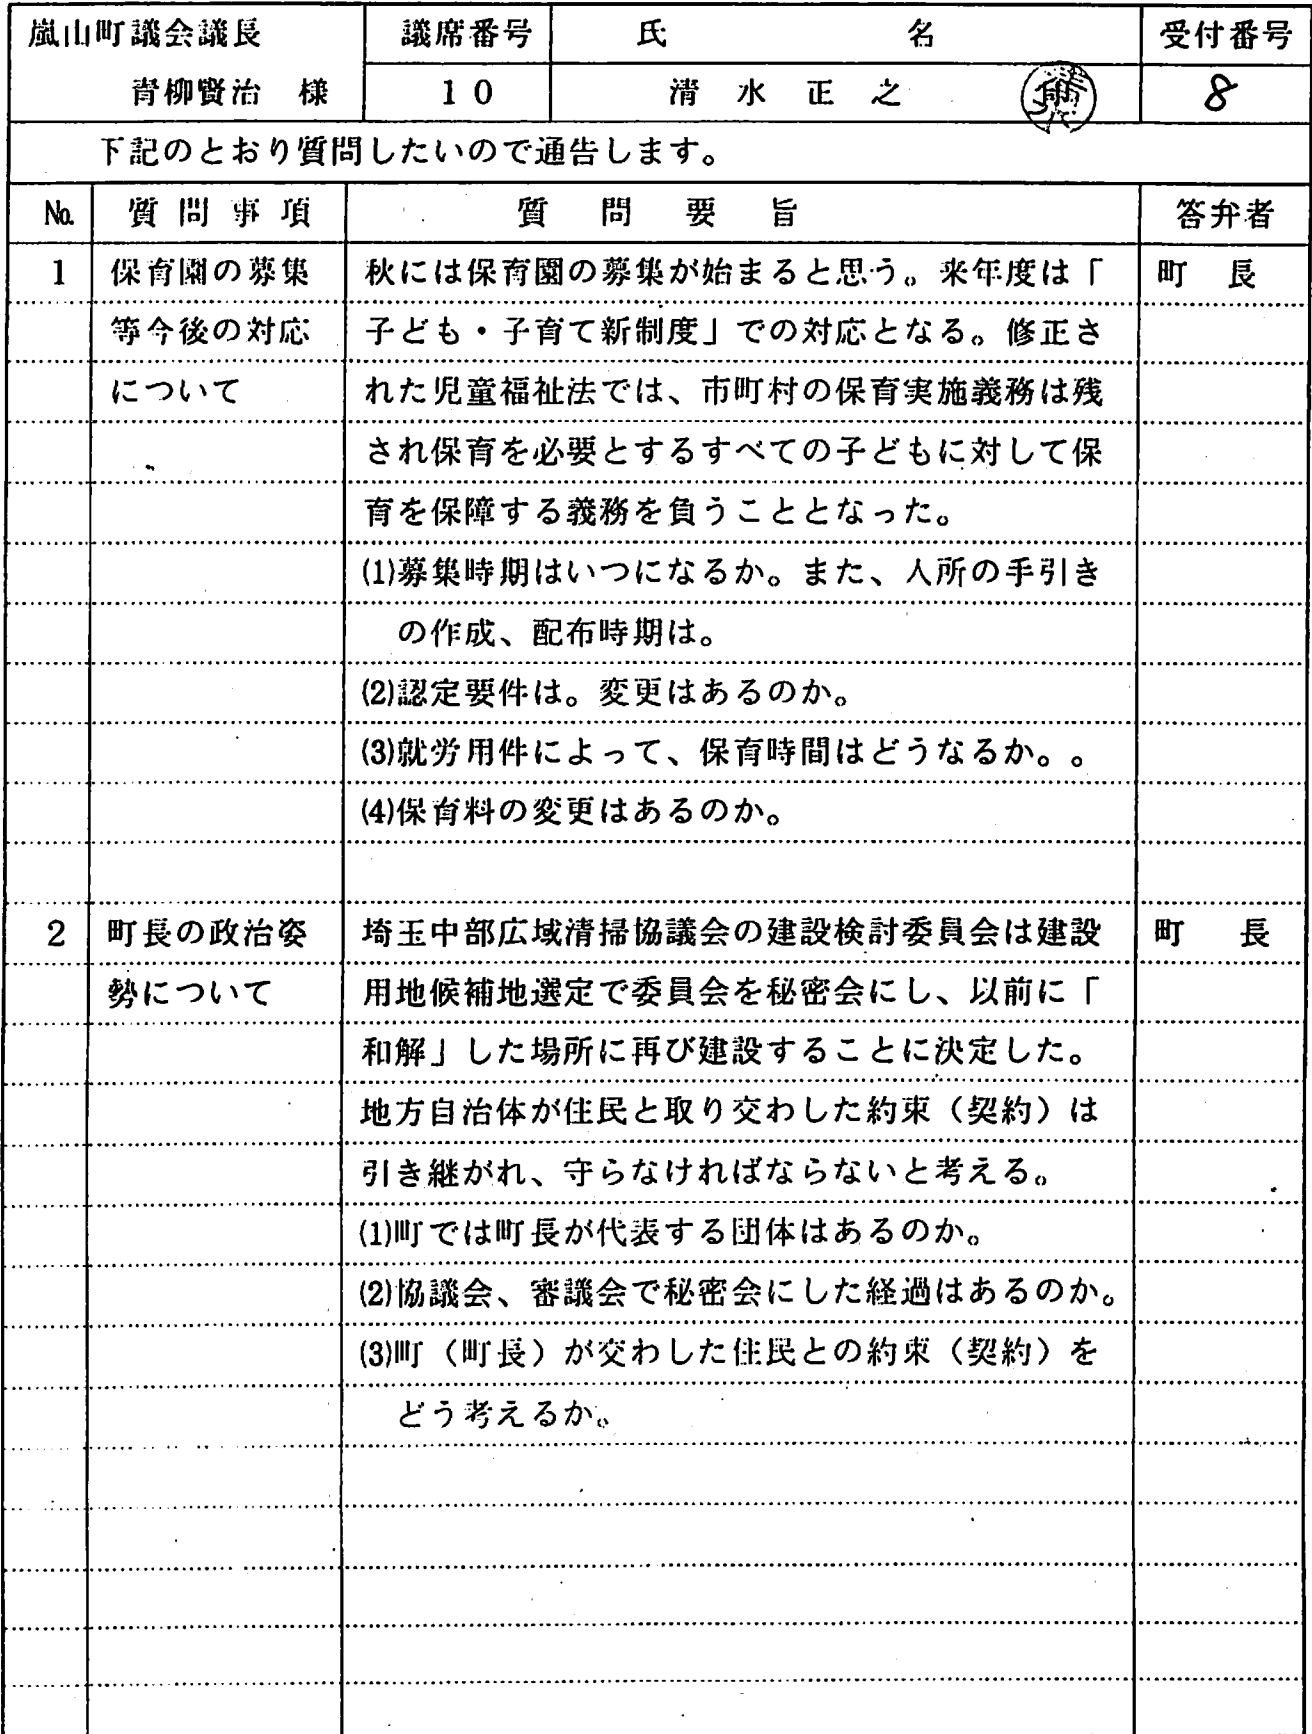 嵐山町議会議長 議席番号 氏 名 受付番号
青柳賢治 様 10 清水正之 8
下記のとおり質問したいので通告します。
No. 質問事項 質問要旨 答弁者
1 保育園の募集 秋には保育園の募集が始まると思う。来年度は「 町長
等今後の対応 子ども・子育て新制度」での対応となる。修正さ
について れた児童福祉法では、市町村の保育実施義務は残
され保育を必要とするすべての子どもに対して保
育を保障する義務を負うこととなった。
(1)募集時期はいつになるか。また、入所の手引き
の作成、配布時期は。
(2)認定要件は。変更はあるのか。
(3)就労用件によって、保育時間はどうなるか。。
(4)保育料の変更はあるのか。
2 町長の政治姿 埼玉中部広域清掃協議会の建設検討委員会は建設 町長
勢について 用地候補地選定で委員会を秘密会にし、以前に「
和解」した場所に再び建設することに決定した。
地方自治体が住民と取り交わした約束（契約）は
引き継がれ、守らなければならないと考える。
(1)町では町長が代表する団体はあるのか。
(2)協議会、審議会で秘密会にした経過はあるのか。
(3)町（町長）が交わした住民との約束（契約）を
どう考えるか。